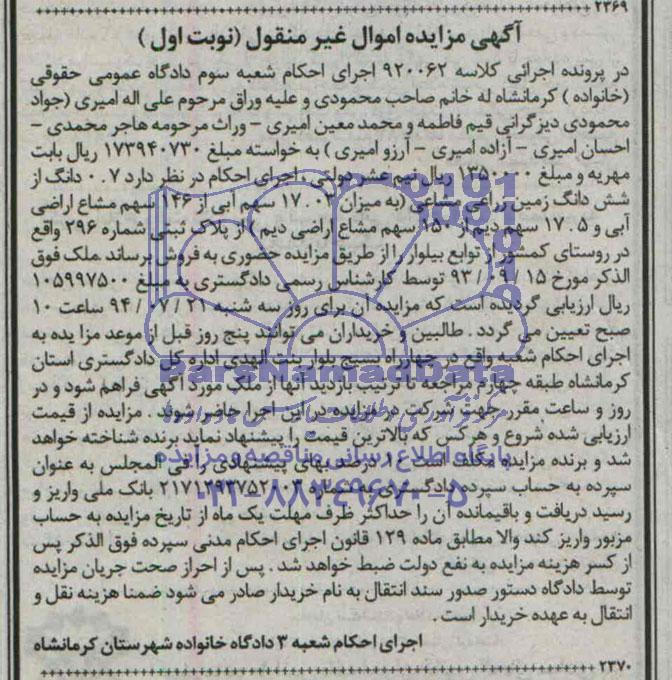 ۲۳۶۹
آگهی مزایده اموال غیر منقول (نوبت اول)
در پرونده اجرائی کلاسه ۹۲۰۰۶۲ اجرای احکام شعبه سوم دادگاه عمومی حقوقی
(خانواده) کرمانشاه له خانم صاحب محمودی و علیه وراق مرحوم علی اله امیری (جواد
محمودی دیزگرانی قیم فاطمه و محمد معین امیری - وراث مرحومه هاجر محمدی -
احسان امیری - آزاده امیری - آرزو امیری) به خواسته مبلغ ۱۷۳۹۴۰۷۳۰ ریال بابت
مهریه و مبلغ ۱۳۵۰۰۰۰ ریال نیم عشر دولتی، اجرای احکام در نظر دارد ۰.۷ دانگ از
شش دانگ زمین زراعی مشاعی (به میزان ۱۷.۰۳ سهم آبی از ۱۴۶ سهم مشاع اراضی
آبی و ۱۷.۵ سهم دیم از ۱۵۰ سهم مشاع اراضی دیم) از پلاک ثبتی شماره ۲۹۶ واقع
در روستای کمشور از توابع بیلوار را از طریق مزایده حضوری به فروش برساند .ملک فوق
الذکر مورخ ۱۵ / ۰۹ / ۹۳ توسط کارشناس رسمی دادگستری به مبلغ ۱۰۵۹۹۷۵۰۰
ریال ارزیابی گردیده است که مزایده آن برای روز سه شنبه ۲۱ / ۰۷ / ۹۴ ساعت ۱۰
صبح تعیین می گردد . طالبین و خریداران می توانند پنج روز قبل از موعد مزا یده به
اجرای احکام شعبه واقع در چهارراه بسیج بلوار بنت الهدی اداره کل دادگستری استان
کرمانشاه طبقه چهارم مراجعه تا ترتیب بازدید آنها از ملک مورد آگهی فراهم شود و در
روز و ساعت مقرر جهت شرکت در مزایده در این اجرا حاضر شوند . مزایده از قیمت
ارزیابی شده شروع و هرکس که بالاترین قیمت را پیشنهاد نماید برنده شناخته خواهد
شد و برنده مزایده مکلف است ۱۰ درصد بهای پیشنهادی را فی المجلس به عنوان
سپرده به حساب سپرده دادگستری به شماره ۲۱۷۱۲۹۳۷۵۲۰۰۳ بانک ملی واریز و
رسید دریافت و باقیمانده آن را حداکثر ظرف مهلت یک ماه از تاریخ مزایده به حساب
مزبور واریز کند والا مطابق ماده ۱۲۹ قانون اجرای احکام مدنی سپرده فوق الذکر پس
از کسر هزینه مزایده به نفع دولت ضبط خواهد شد . پس از احراز صحت جریان مزایده
توسط دادگاه دستور صدور سند انتقال به نام خریدار صادر می شود ضمنا هزینه نقل و
انتقال به عهده خریدار است .
اجرای احکام شعبه ۳ دادگاه خانواده شهرستان کرمانشاه
۲۳۷۰
ParsNamadData
پایگاه اطلاع رسانی مناقصه و مزایده
۰۲۱-۸۸۳۴۹۶۷۰-۵